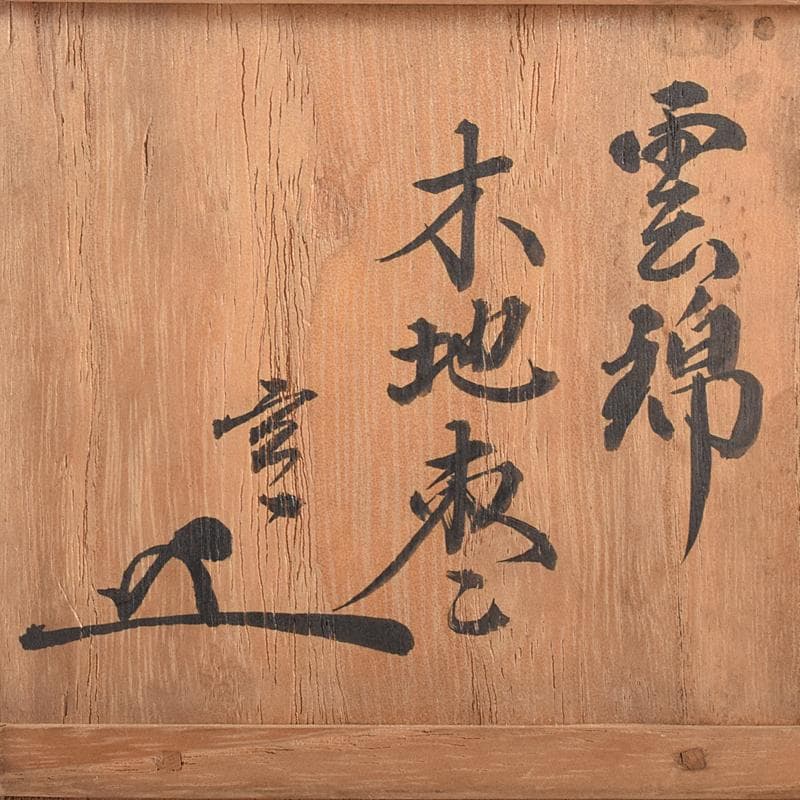 雲錦
木地棗